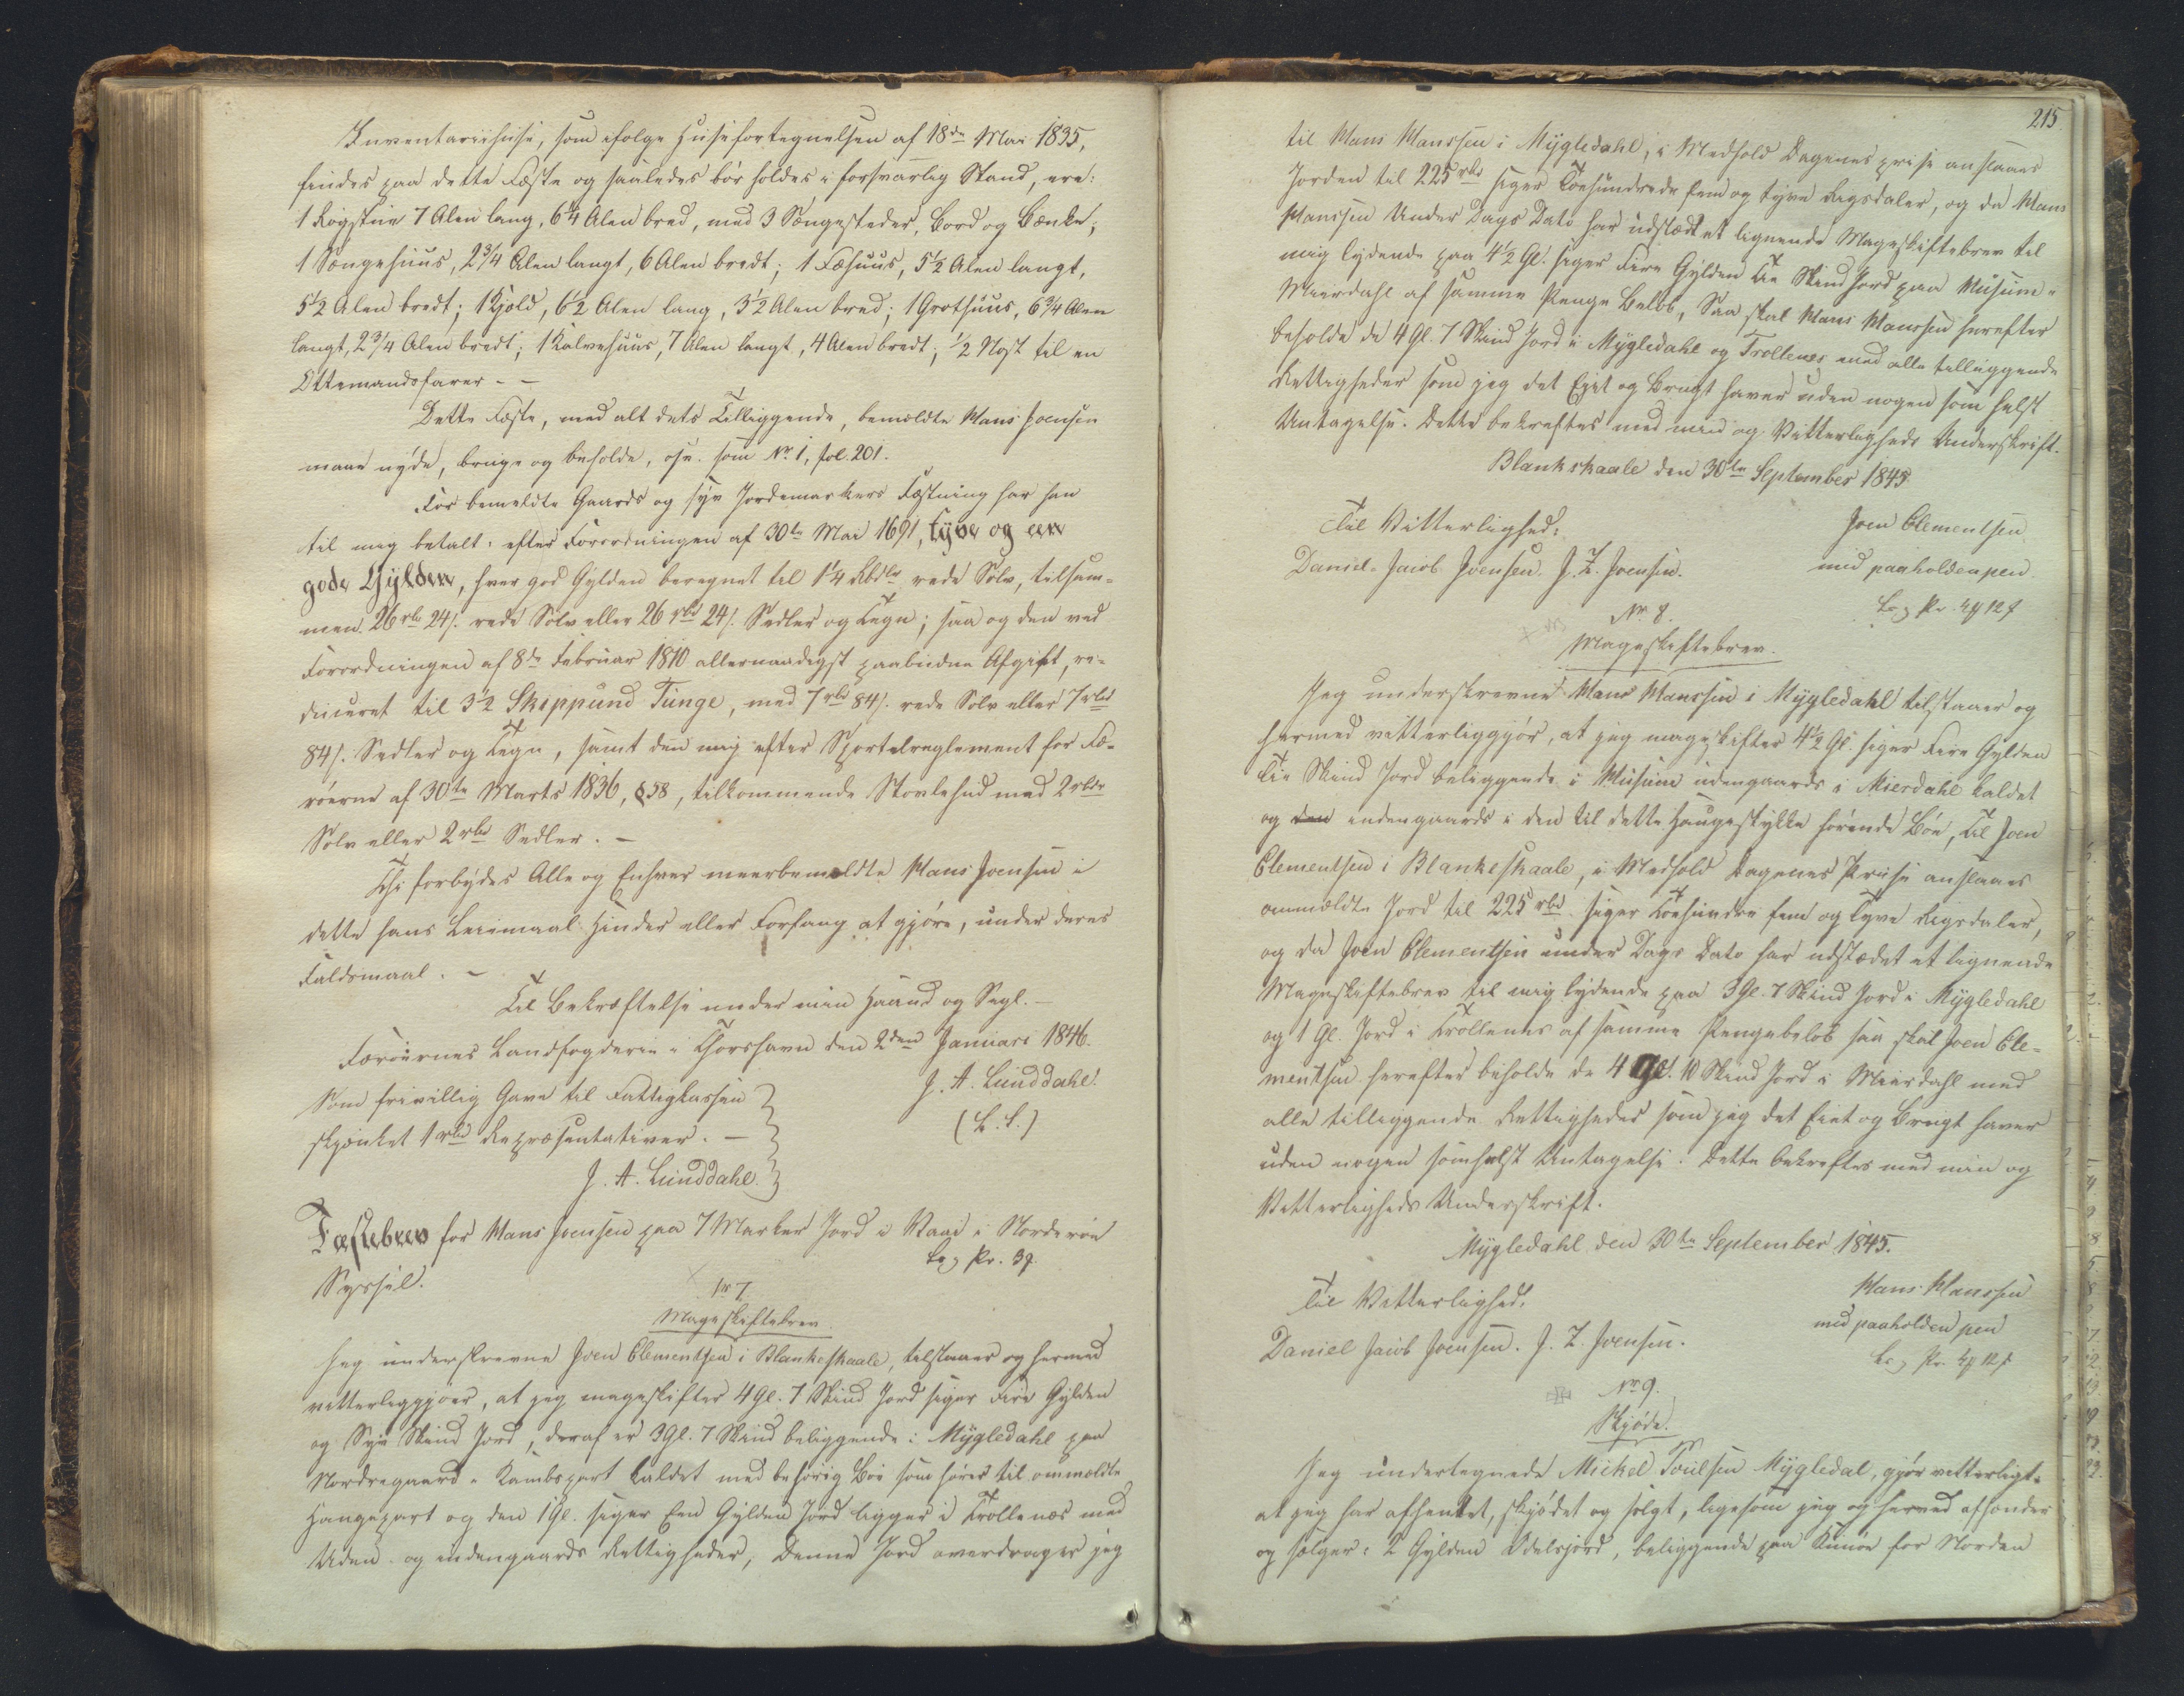 Inventariihuse, som ifølge Husefortegnelsen af 18de Mai 1835,
findes paa dette Fæste og saaledes bør holdes i forsvarlig Stand, ere:
1 Røgstue 7 Alen lang, 6 1/4 Alen bred, med 3 Sengesteder, Bord og Bænke;
1 Sengehuus, 2 3/4 Alen langt, 6 Alen bredt; 1 Fæhuus, 5 1/2 Alen langt,
5 1/2 Alen bredt; 1 Hjold, 6 1/2 Alen lang, 3 1/2 Alen bred; 1 Grothuus, 6 3/4 Alen
langt, 2 3/4 Alen bredt; 1 Kalvehuus, 7 Alen langt, 4 Alen bredt; 1/2 Nøst til en
Ottemandsfarer. -
Dette Fæste, med alt dets Tilliggende, bemeldte Hans Joensen
maae nyde, bruge og beholde, osv. som No 1, fol. 201.
For bemeldte Gaards og syv Jordemarkers Fæstning har han
til mig betalt, efter Forordningen af 30te Mai 1691, tyve og een
gode Gylden, hver god Gylden beregnet til 1 1/4 Rbdlr rede Sølv, tilsam-
men 26 rbd 24 s. rede Sølv eller 26 rbd 24 s. Sedler og Tegn; saa og den ved
Forordningen af 8de Februar 1810 allernaadigst paabudne Afgift, re-
duceret til 3 1/2 Skippund Tunge, med 7 rbd 84 s. rede Sølv eller 7 rbd
84 s. Sedler og Tegn, samt den mig efter Sportelreglement for Fæ-
røerne af 30te Marts 1836, § 58, tilkommende Støvlehud med 2 rbdr
Sølv eller 2 rbd Sedler. -
Thi forbydes Alle og Enhver meerbemeldte Hans Joensen i
dette hans Leiemaal Hinder eller Forfang at gjøre, under deres
Faldsmaal. -
Til Bekræftelse under min Haand og Segl. -
Færøernes Landfogderie i Thorshavn den 2den Januari 1846.
J. A. Lunddahl.
(L. S.)
Som frivillig Gave til Fattigkassen
skjenket 1 rbd Repræsentativer. -
J. A. Lunddahl.
Fæstebrev for Hans Joensen paa 7 Marker Jord i Waai i Norderøe
Syssel.
No 7.
Mageskiftebrev.
Jeg underskrevne Joen Clementsen i Blankeskaale, tilstaaer og hermed
vitterliggjøer, at jeg mageskifter 4 Gl. 7 Skind Jord siger Fire Gylden
og Syv Skind Jord, deraf er 3 Gl. 7 Skind beliggende i Mygledahl paa
Nordregaard i Kambspart kaldet med behørig Bøe som hører til ommeldte
Haugepart og den 1 Gl. siger Een Gylden Jord ligger i Trollenæs med
Uden- og indengaards Rettigheder, Denne Jord overdrager jeg
215
til Hans Hanssen i Mygledahl, i Medhold Dagenes prise anslaaes
Jorden til 225 rbd siger Toehundrede fem og tyve Rigsdaler, og da Hans
Hanssen Under Dags Dato har udstædt et lignende Mageskiftebrev til
mig lydende paa 4 1/2 Gl. siger Fire Gylden tie Skind Jord paa Husum i
Mierdahl af samme Penge Beløb, Saa skal Hans Hanssen herefter
beholde de 4 Gl. 7 Skind Jord i Mygledahl og Trollenes med alle tilliggende
Rettigheder som jeg det Eiet og Brugt haver uden nogen som helst
Untagelse. Dette bekræftes med min og Vitterligheds Underskrift.
Blankskaale den 30te September 1845.
Til Vitterlighed:
Daniel Jacob Joensen. J. Z. Joensen.
Joen Clementsen
med paaholden pen.
No 8.
Mageskiftebrev.
Jeg underskrevne Hans Hanssen i Mygledahl tilstaaer og
hermed vitterliggjør, at jeg mageskifter 4 1/2 Gl. siger Fire Gylden
tie Skind Jord beliggende i Husum udengaards i Mierdahl kaldet
og den indengaards i den til dette Haugestykke hørende Bøe, til Joen
Clementsen i Blankeskaale, i Medhold Dagenes Priise anslaaes
ommeldte Jord til 225 rbd siger Toehundre fem og Tyve Rigsdaler,
og da Joen Clementsen under Dags Dato har udstædet et lignende
Mageskiftebrev til mig lydende paa 3 Gl. 7 Skind Jord i Mygledahl
og 1 Gl. Jord i Trollenes af samme Pengebeløb saa skal Joen Cle-
mentsen herefter beholde de 4 Gl. 10 Skind Jord i Mierdahl med
alle tilliggende Rettigheder som jeg det Eiet og Brugt haver
uden nogen somhelst Untagelse. Dette bekreftes med min og
Vitterligheds Underskrift.
Mygledahl den 30te September 1845.
Til Vitterlighed.
Daniel Jacob Joensen. J. Z. Joensen.
Hans Hanssen
med paaholden pen
No 9.
Skjøde.
Jeg undertegnede Michel Poulsen Mygledal, gjør vitterligt,
at jeg har afhendet, skjødet og solgt, ligesom jeg og herved afhender
og sælger: 2 Gylden Odelsjord, beliggende paa Kunøe for Norden